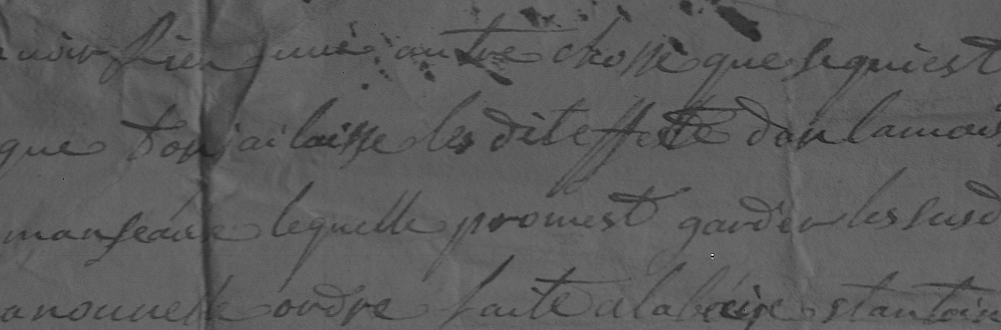 avoir rien d'une autre chosse que sequiest
que dont jai laisse les dit effette dan lamais
manseause lequelle promest garder les susd
a nouvelle ordre faite a la stantoise